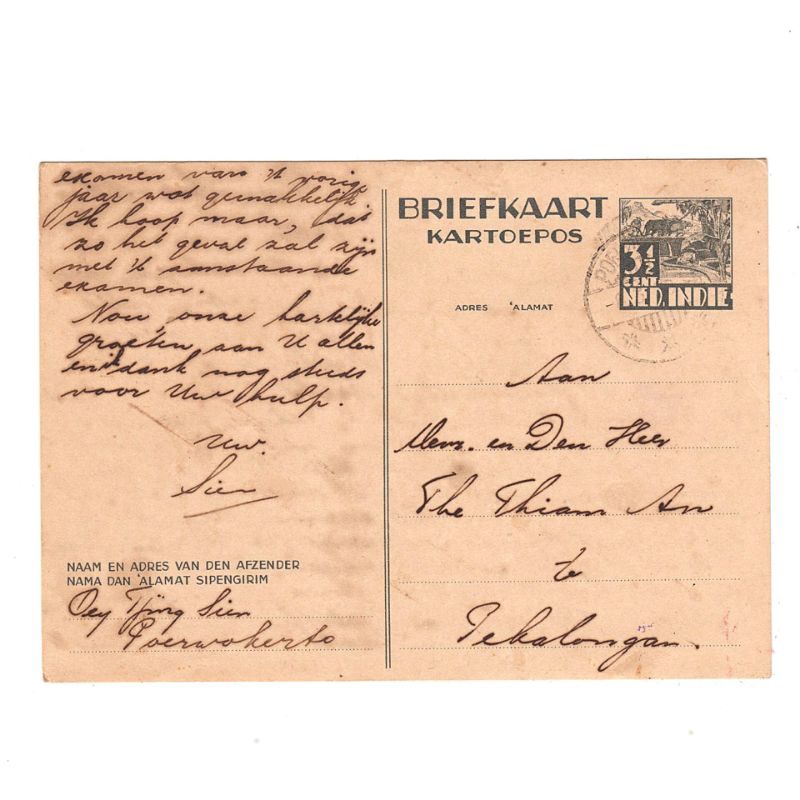 examen van 't vorig
jaar wat gemakkelijk
Ik hoop maar, dat
zo het geval zal zijn
met 't aanstaande
examen.
Nou onze hartelijke
groeten aan U allen
en dank nog steeds
voor Uw hulp.
Uw.
Sien
NAAM EN ADRES VAN DEN AFZENDER
NAMA DAN 'ALAMAT SIPENGIRIM
Oey Tjing Sien
Poerwokerto
BRIEFKAART
KARTOEPOS
3 1/2
CENT
NED. INDIE
ADRES 'ALAMAT
Aan
Mevr. en Den Heer
The Thiam An
te
Pekalongan.